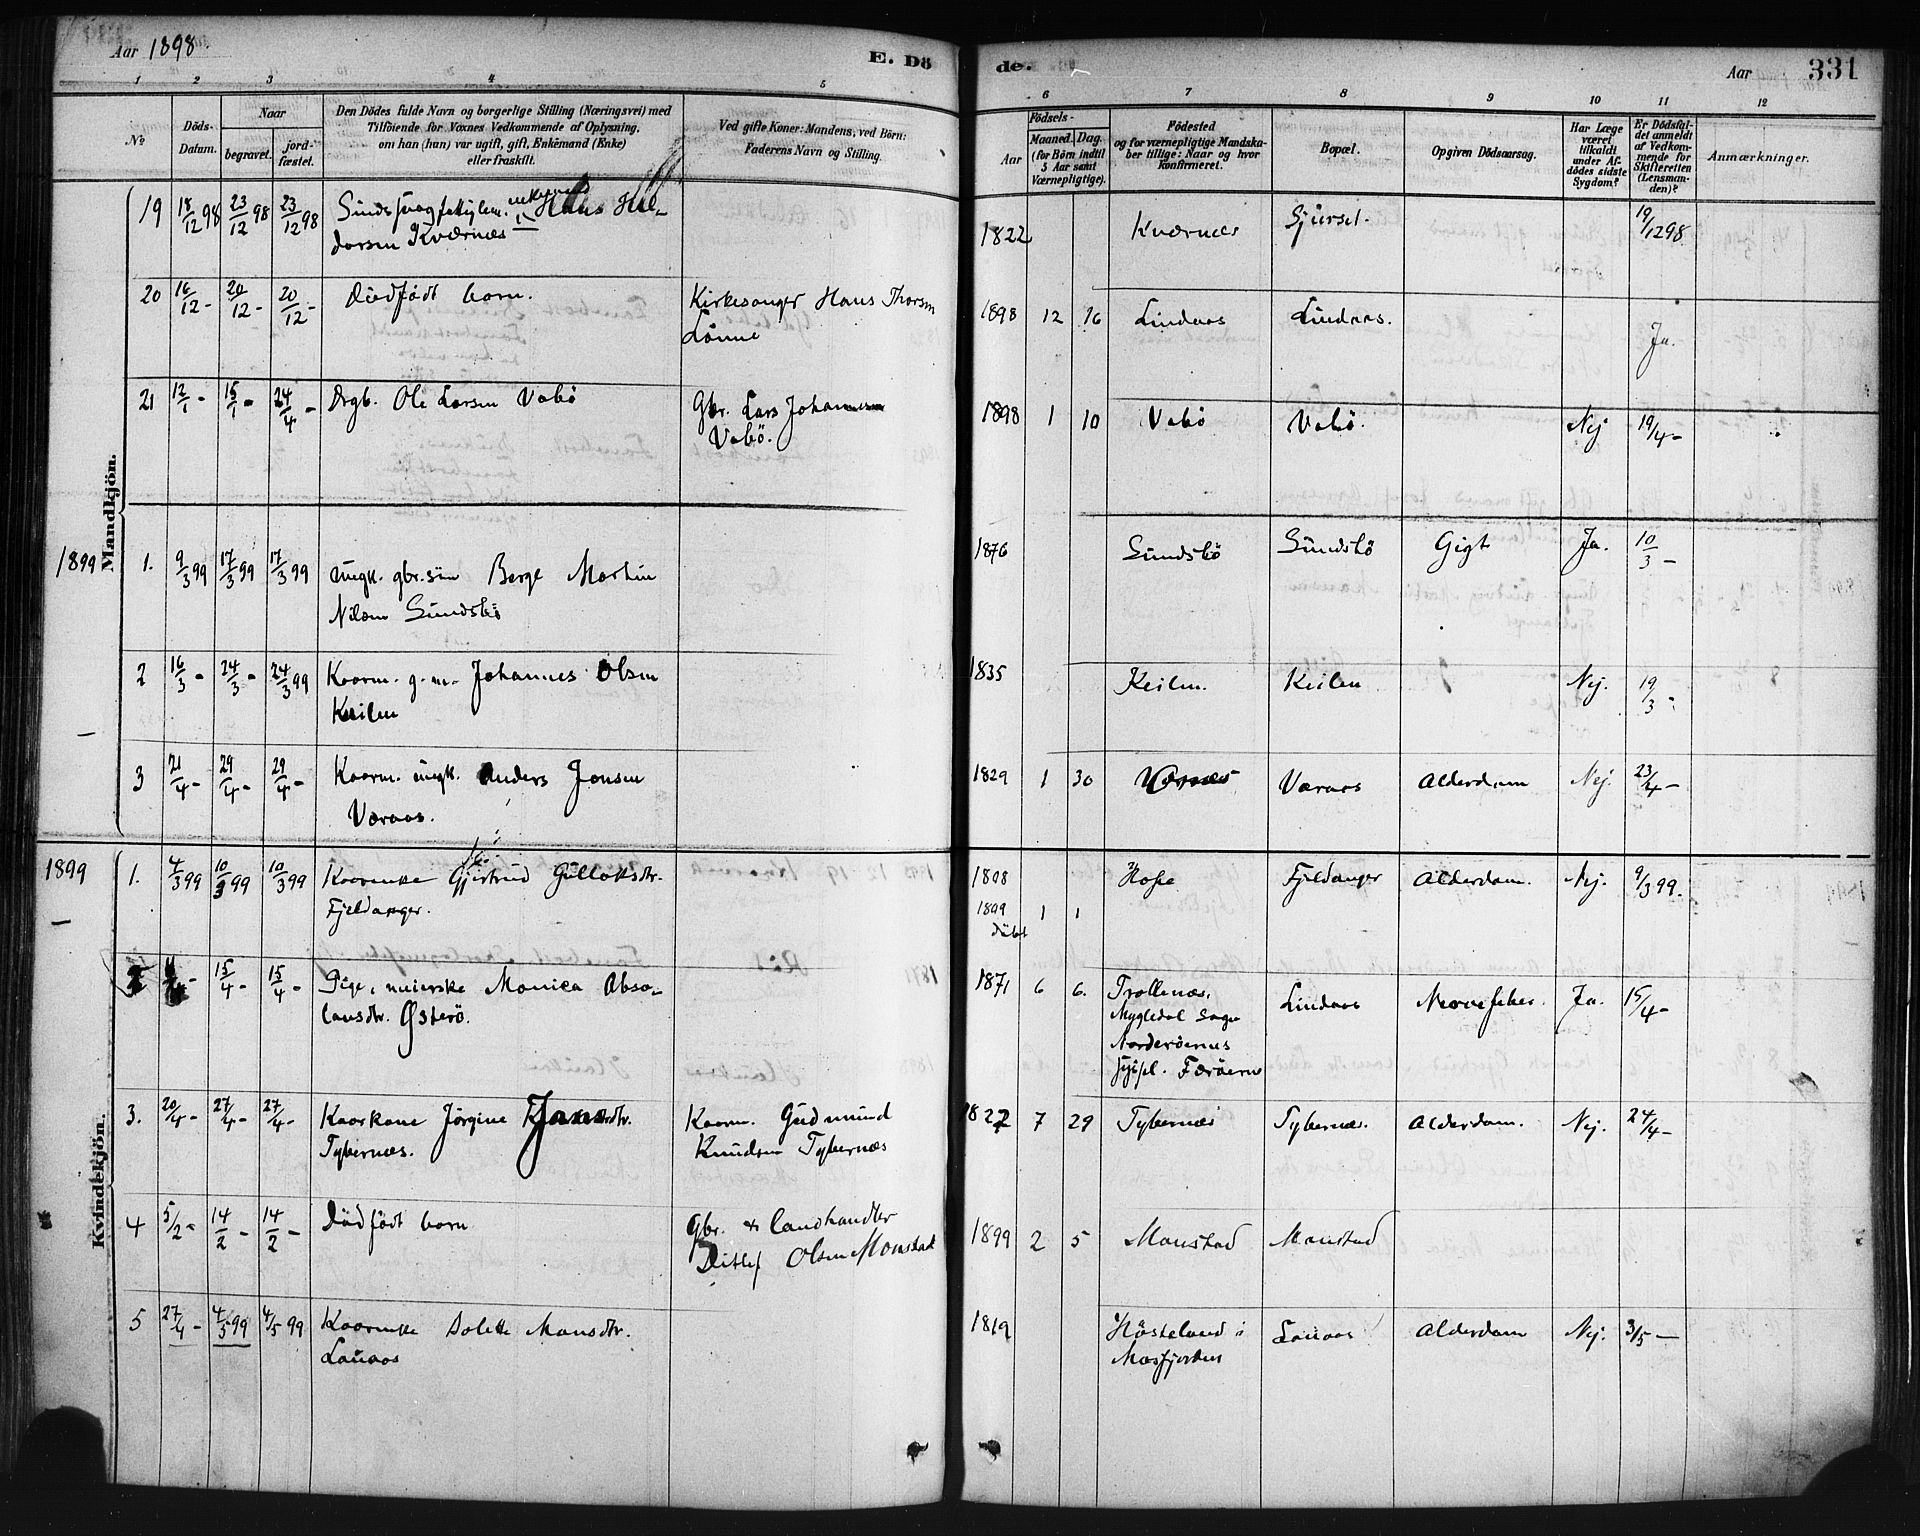 Aar 1898.
E. Dö
de.
Aar
331
1 2 3 4 5 6 7 8 9 10 11 12
No
Döds-
Datum.
Naar
begravet.
jord-
fæstet.
Den Dödes fulde Navn og borgerlige Stilling (Næringsvei) med
Tilföiende for Voxnes Vedkommende af Oplysning,
om han (hun) var ugift, gift, Enkemand (Enke)
eller fraskilt.
Ved gifte Koner: Mandens; ved Börn:
Faderens Navn og Stilling.
Födsels-
Aar
Maaned. Dag.
(for Börn indtil
5 Aar samt
Værnepligtige).
Födested
og for værnepligtige Mandska-
ber tillige: Naar og hvor
konfirmeret.
Bopæl.
Opgiven Dödsaarsag.
Har Læge
været
tilkaldt
under Af-
dödes sidste
Sygdom?
Er Dödsfal-
det anmeldt
af Vedkom-
mende for
Skifteretten
(Lensman-
den)?
Anmærkninger.
Mandkjön.
19 18/12 98 23/12 98 23/12 98 Hans Hel-
dorsen Kværnes
1822 Kværnes Sjursel. 19/12 98
20 16/12 - 20/12 - 20/12 - Dödfödt barn. Kirkesanger Hans Thorsen
Lönne
1898 12 16 Lindaas Lindaas. Ja.
21 12/1 - 15/1 - 24/4 - Drgb. Ole Larsen Vabö Gbr. Lars Johannesen
Vabö.
1898 1 10 Vabö Vabö. Nej 19/4 -
1899
1. 9/3 99 17/3 99 17/3 99 ungk. gbr.sön Berge Martin
Nilsen Sundsbö
1876 Sundsbö Sundsbö Gigt Ja. 10/3 -
2 16/3 - 24/3 - 24/3 99 Kaarm. g.m. Johannes Olsen
Keilen
1835 Keilen. Keilen Nej. 19/3 -
3 21/4 - 29/4 - 29/4 - Kaarm. ungk. Anders Jonsen
Væraas.
1829 1 30 Væraas Alderdom Nej. 23/4 -
1899
Kvindekjön.
1. 4/3 99 10/3 99 10/3 99 Kaarenke Gjertrud Gulloksdtr.
Fjeldanger.
1808 Hope Fjeldanger Alderdom. Nej. 9/3 99.
1809 1 1
Döbt
2 15/4 - 15/4 - Pige, meierske Monica Abso-
lonsdtr. Østerö.
1871 6 6. Trollenæs, Lindaas Nervefeber. Ja. 15/4 -
Mygledal Sogn
Norderöernes
Syssel. Færöerne
3. 20/4 - 27/4 - 27/4 - Kaarkone Jørgine Jansdtr.
Tybernæs.
Kaarm. Gudmund
Knudsen Tybernæs
1827 7 29 Tybernæs Tybernæs. Alderdom. Nej. 24/4 -
4 5/2 - 14/2 - 14/2 - Dödfödt barn Gbr. & landhandler
Ditlef Olsen Monstad
1899 2 5 Monstad Monstad
5 27/4 - 4/5 99 4/5 99 Kaarenke Solette Monsdtr.
Lauaas
1819 Höiseland i Lauaas Alderdom Nej. 3/5 -
Masfjorden